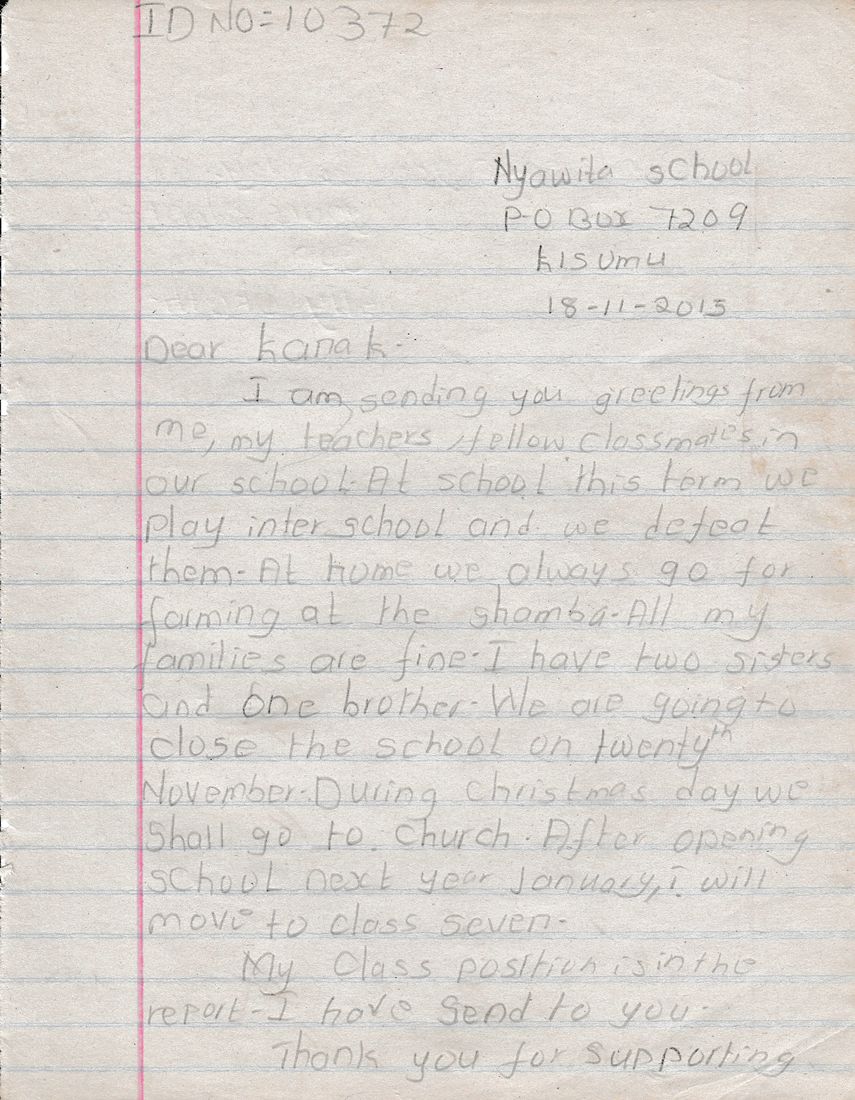 ID NO=10372
Nyawita school
P.O Box 7209
kisumu
18-11-2015
Dear kanak.
I am sending you greetings from
me, my teachers, fellow classmates in
our school. At school this term we
play inter school and we defeat
them. At home we always go for
farming at the shamba. All my
families are fine. I have two sisters
and one brother. We are going to
close the school on twentyth
November. During christmas day we
shall go to church. After opening
school next year january, i will
move to class seven.
My Class position is in the
report. I have send to you.
Thank you for supporting